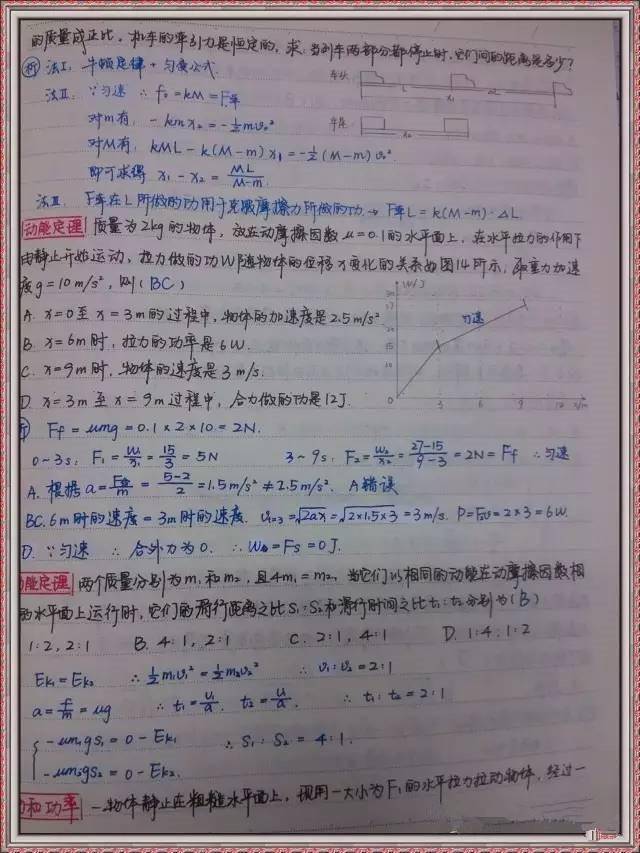 的质量成正比，机车的牵引力是恒定的，求：当列车两部分都停止时，它们间的距离是多少？
析 法I：牛顿定律+匀变公式
法II：∵匀速 ∴ f₀=kM=F牵
对m有，-kmx₂=-½mv₀²
对M有，kML-k(M-m)x₁=-½(M-m)v₀²
即可求得 x₁-x₂=ML/(M-m)
车头 L x₁ ΔL
车尾 x₂
法III. F牵在L所做的功用于克服摩擦力所做的功→F牵L=k(M-m)·ΔL
动能定理 质量为2kg的物体，放在动摩擦因数μ=0.1的水平面上，在水平拉力的作用下
由静止开始运动，拉力做的功W随物体的位移x变化的关系如图14所示，取重力加速
度g=10m/s²，则(BC)
A. x=0至x=3m的过程中，物体的加速度是2.5m/s²
B. x=6m时，拉力的功率是6W.
C. x=9m时，物体的速度是3m/s.
D. x=3m至x=9m过程中，合力做的功是12J.
W/J
匀速
0 3 6 9 12 x/m
析 Ff=μmg=0.1×2×10=2N.
0~3s: F₁=W₁/x₁=15/3=5N 3~9s: F₂=W₂/x₂=(27-15)/(9-3)=2N=Ff ∴匀速
A. 根据a=F合/m=(5-2)/2=1.5m/s²≠2.5m/s². A错误
BC. 6m时的速度=3m时的速度. v₁=₃=√2ax=√2×1.5×3=3m/s. P=Fv=2×3=6W.
D. ∵匀速 ∴合外力为0. ∴W合=Fs=0J.
动能定理 两个质量分别为m₁和m₂，且4m₁=m₂，当它们以相同的动能在动摩擦因数相
的水平面上运行时，它们的滑行距离之比s₁:s₂和滑行时间之比t₁:t₂分别为(B)
1:2, 2:1 B. 4:1, 2:1 C. 2:1, 4:1 D. 1:4, 1:2
Ek₁=Ek₂ ∴½m₁v₁²=½m₂v₂² ∴v₁:v₂=2:1
a=f/m=μg ∴t₁=v₁/a. t₂=v/a. ∴t₁:t₂=2:1
-μm₁gs₁=0-Ek₁ ∴S₁:S₂=4:1.
-μm₂gs₂=0-Ek₂.
功和功率 一物体静止在粗糙水平面上，现用一大小为F₁的水平拉力拉动物体，经过一